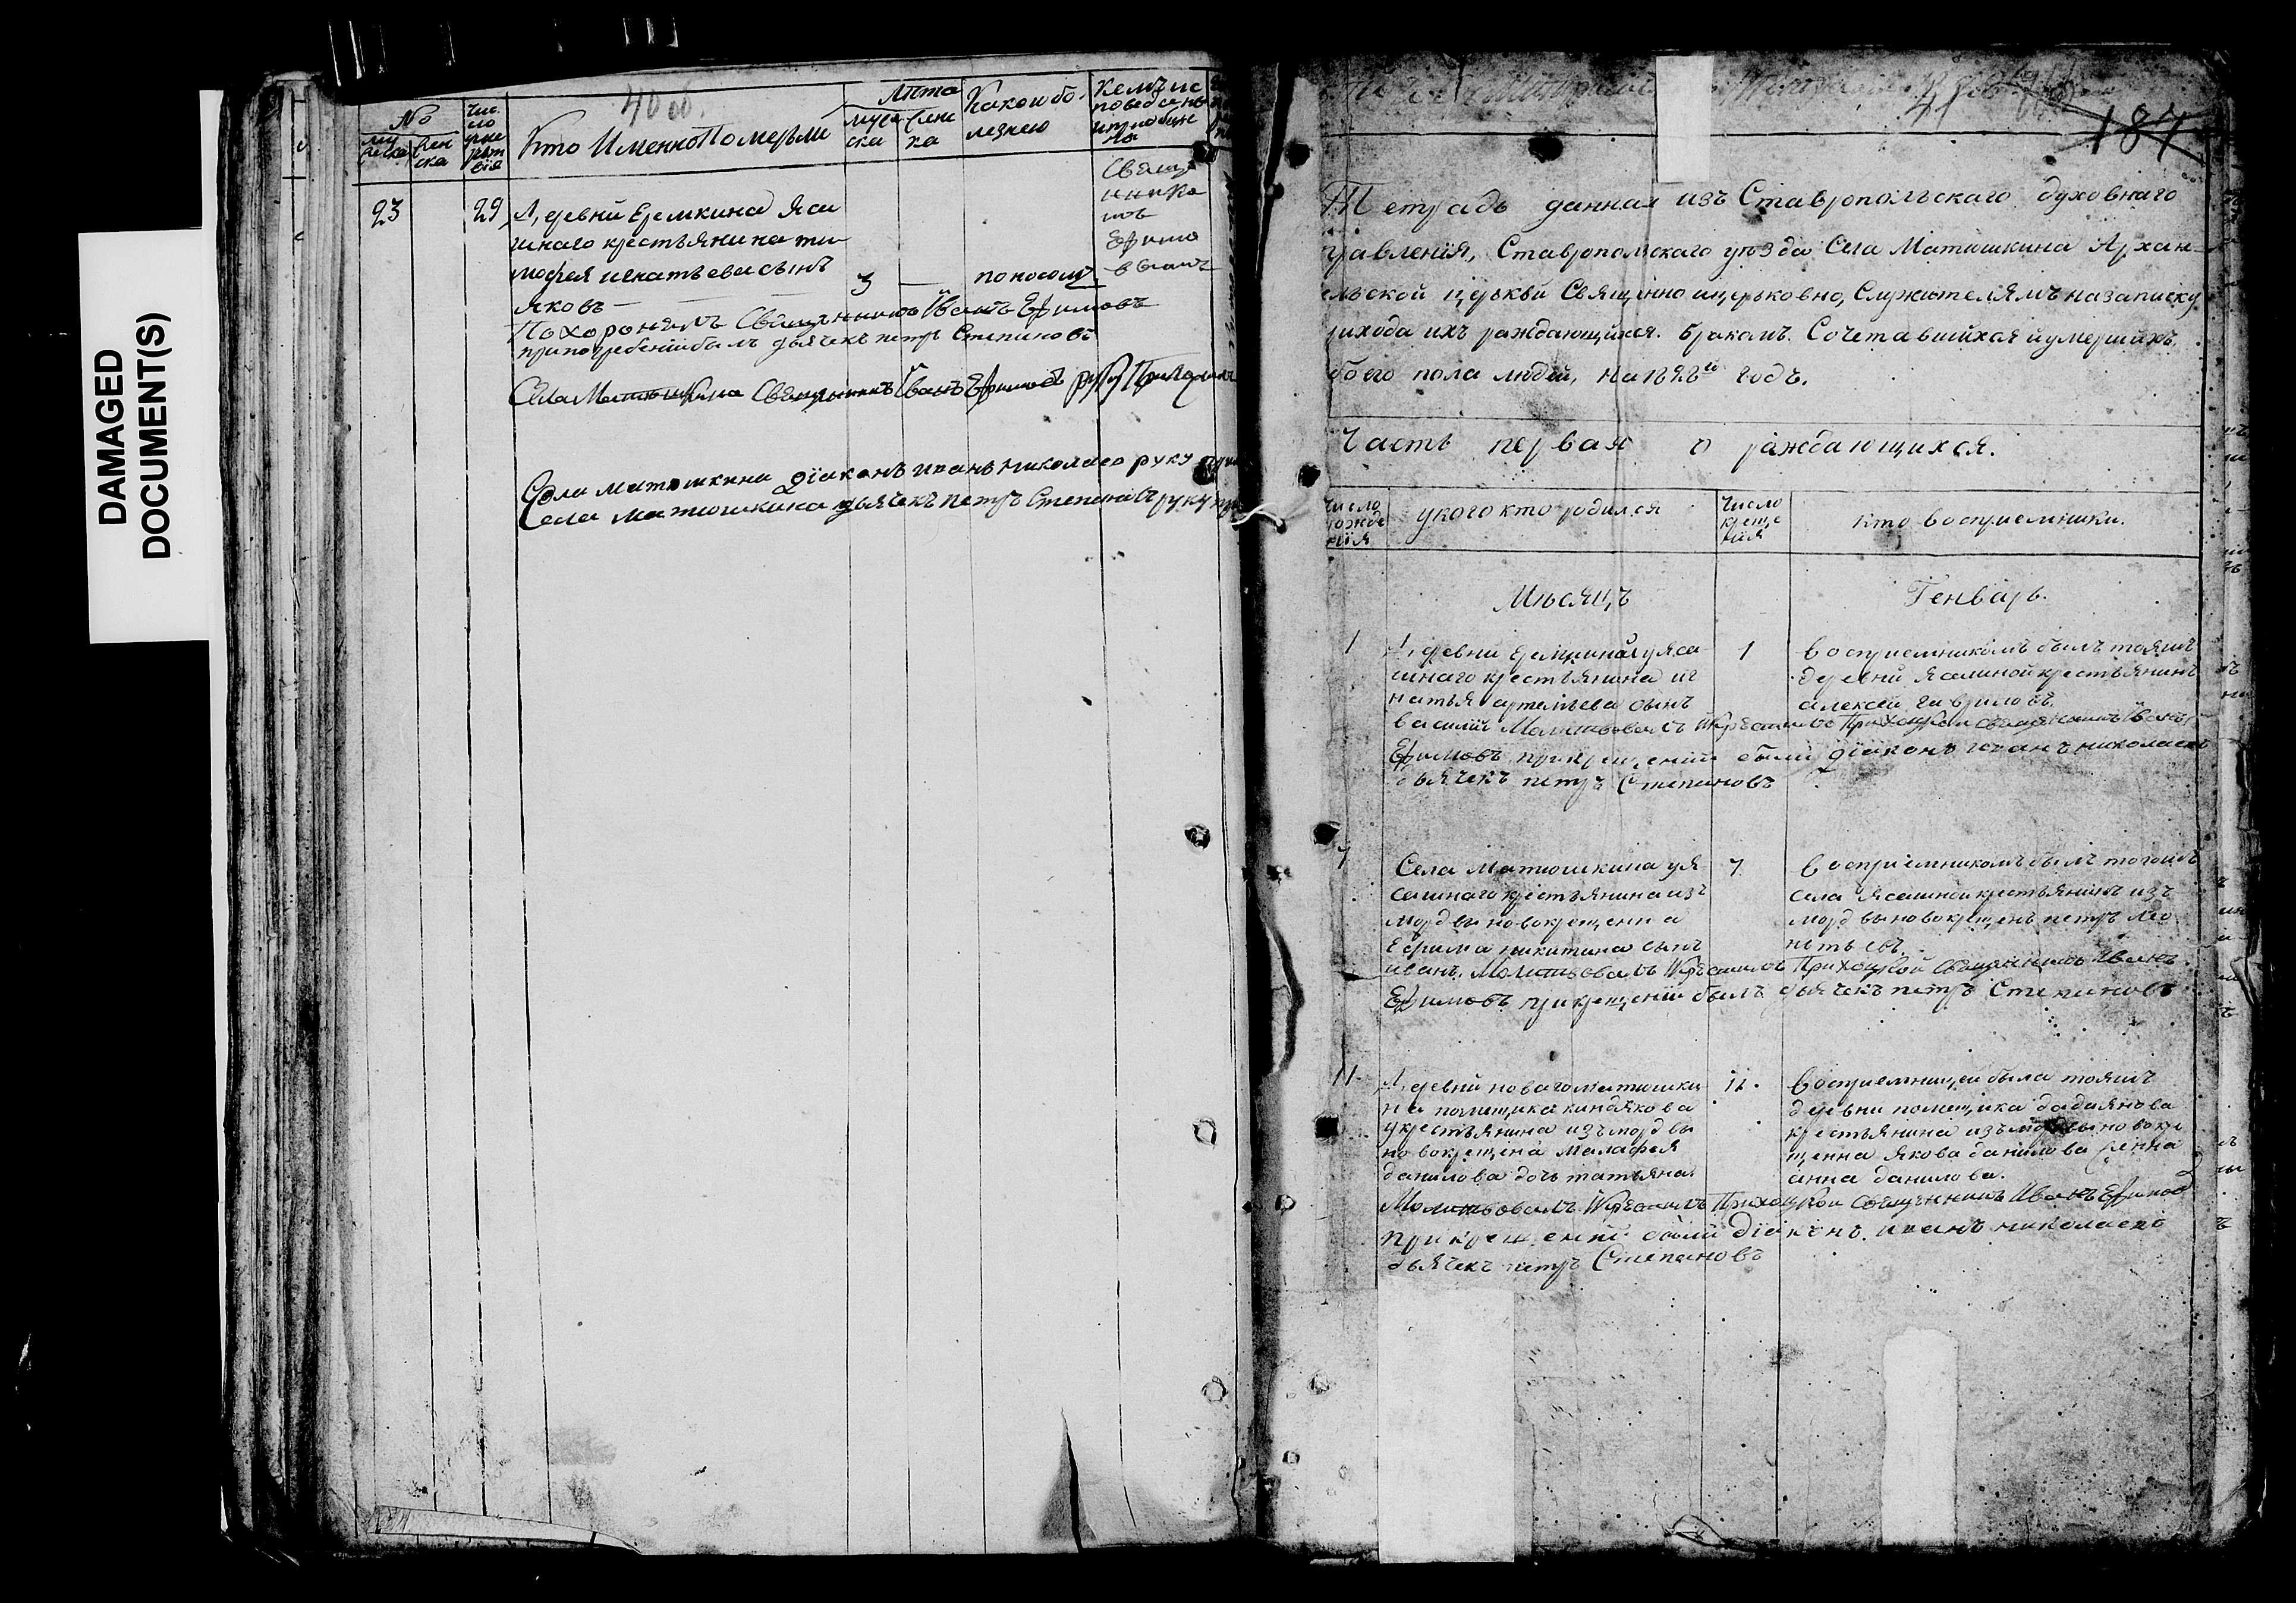 DAMAGED
DOCUMENT(S)
40 об.
№
муже
ска
жен
ска
Чис
ло
уме
рт
вiя
Кто Именно Померъли
Лѣта
муже
ска
жен
ка
Какою бо
лезнею
Кемъ ис
поведаны
и приобще
ны
23
29
Деревни Еремкина Яса
шнаго крестьянина ти
мофея игнатьева сынъ
яковъ
3
поносомъ
Свяще
нника
мъ
Ефимо
вымъ
Похоронилъ Священникъ Иванъ Ефимовъ
при погребенiи былъ дьячекъ петръ Степановъ
Села Матюшкина Священникъ Иванъ Ефимовъ руку Приложилъ
Села матюшкина дiаконъ иванъ николаевъ руку
Села матюшкина дьячекъ петръ Степановъ руку
41
187
Тетрадь данная изъ Ставропольскаго духовнаго
правленiя, Ставропольскаго уезда Села Матюшкина Архан
ельской церькви Священно и церьковно, Служителямъ на записку
рихода ихъ раждающихся. Бракомъ. Сочетавшихся и умершихъ
обоего пола людей, на 1828й годъ.
Часть первая о раждающихся.
Число
рожде
нiя
у кого кто родился
Число
креще
нiя
кто восприемники.
Мѣсяцъ
Генварь.
1
Деревни Еремкиной у яса
шнаго крестьянина иг
натья артемьева сынъ
василiй Молитвовалъ и крестилъ Приходской священникъ Иванъ
Ефимовъ при крещенiи были дiаконъ иванъ николаевъ
дьячекъ петръ Степановъ
1
восприемникомъ былъ тояжъ
деревни ясашной крестьянинъ
алексей гавриловъ.
7
Села Матюшкина у я
сашнаго крестьянина изъ
мордвы новокрещенна
Ефима никитина сынъ
иванъ. Молитвовалъ и крестилъ Приходской Священникъ Иванъ
Ефимовъ при крещенiи былъ дьячекъ петръ Степановъ
7
восприемникомъ былъ тогожъ
села ясашной крестьянинъ изъ
мордвы новокрещенъ петръ лео
нтьевъ.
11
Деревни новаго матюшки
на помещика киндякова
у крестьянина изъ мордвы
новокрещена Малафея
данилова дочь татьяна
Молитвовалъ и крестилъ Приходской Священникъ Иванъ Ефимовъ
при крещенiи были дiаконъ. иванъ николаевъ
дьячекъ петръ Степановъ
11.
восприемницей была тояжъ
деревни помещика дадиянова
крестьянина изъ мордвы новокре
щенна якова данилова жена
анна данилова.